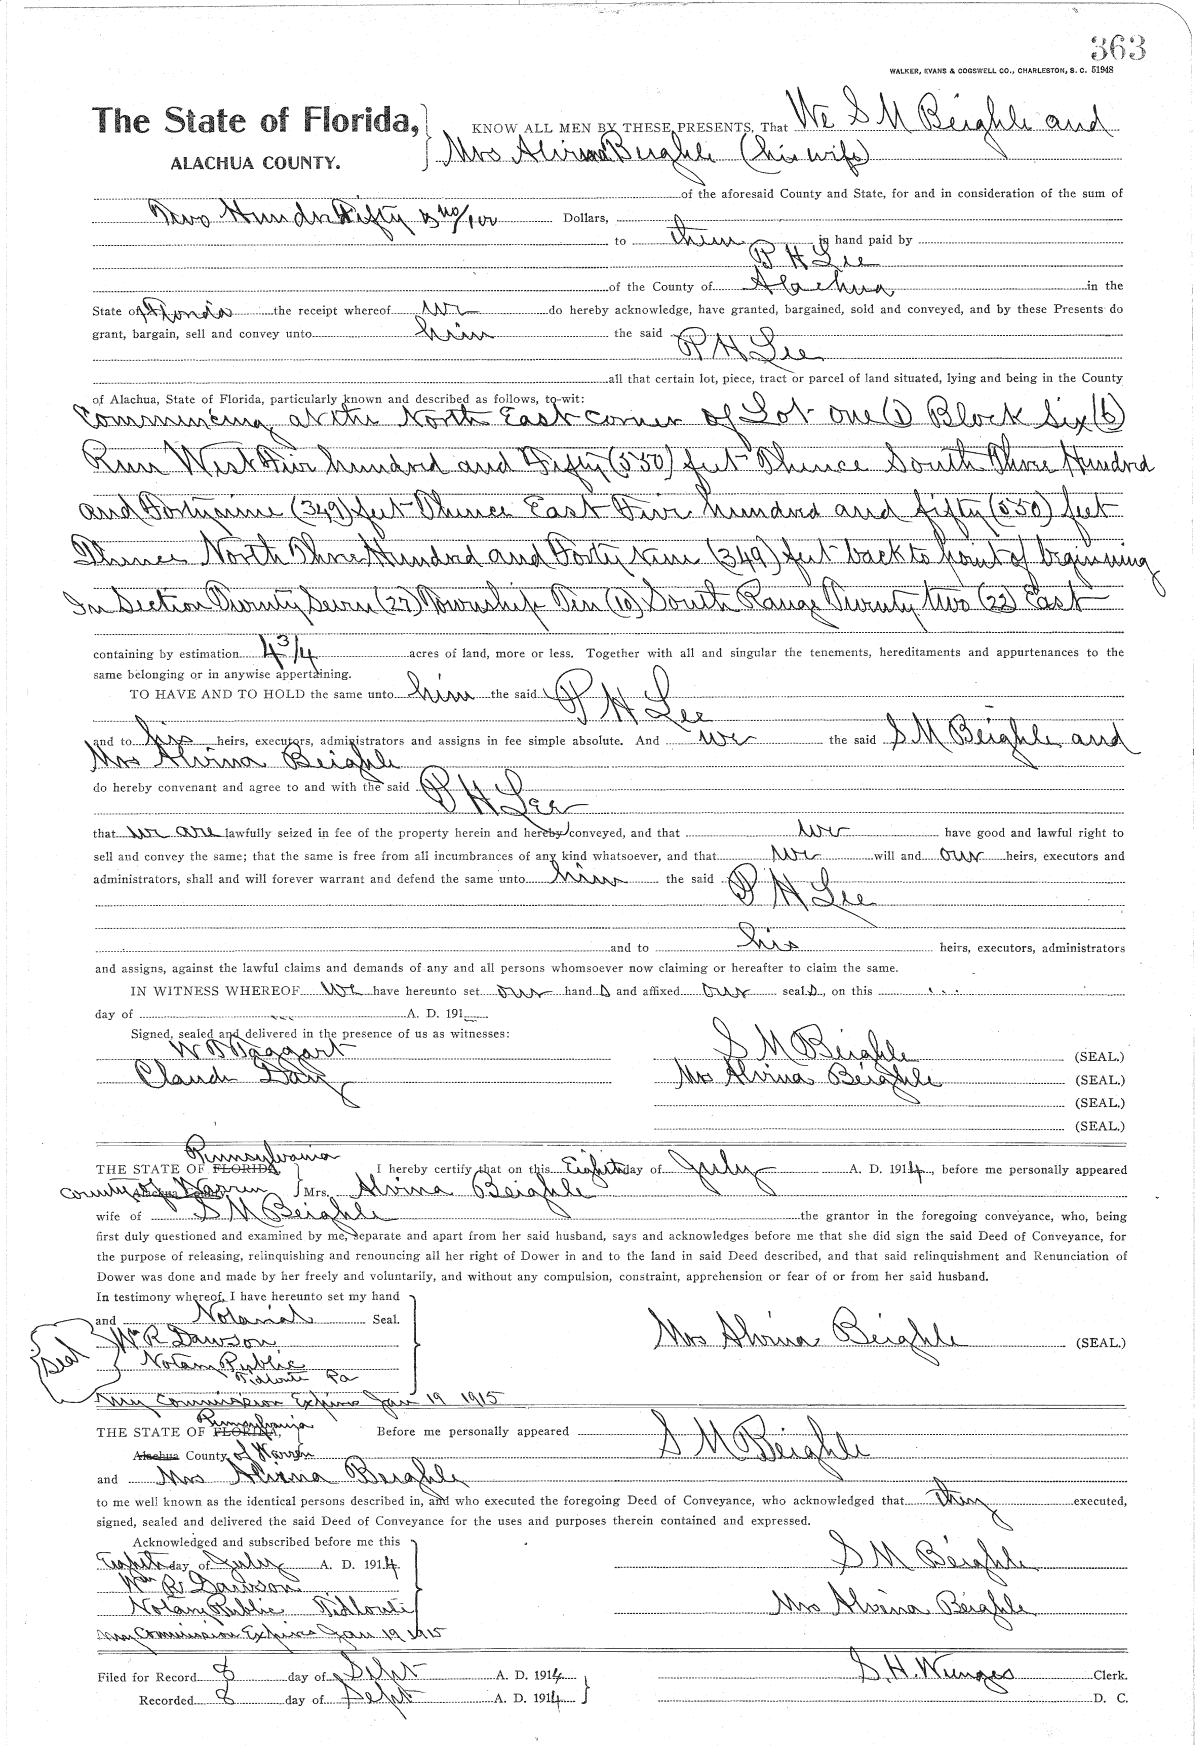 363
WALKER, EVANS & COGSWELL CO., CHARLESTON, S. C. 51948
The State of Florida, KNOW ALL MEN BY THESE PRESENTS, That We S M Beighle and
ALACHUA COUNTY. Mrs Alvina Beighle (his wife)
of the aforesaid County and State, for and in consideration of the sum of
Two Hundred Fifty & no/100 Dollars,
to them in hand paid by
P H Lee
of the County of Alachua in the
State of Florida the receipt whereof we do hereby acknowledge, have granted, bargained, sold and conveyed, and by these Presents do
grant, bargain, sell and convey unto him the said P H Lee
all that certain lot, piece, tract or parcel of land situated, lying and being in the County
of Alachua, State of Florida, particularly known and described as follows, to-wit:
Commencing at the North East corner of Lot one (1) Block Six (6)
Run West Five hundred and Fifty (550) feet Thence South Three Hundred
and Fortynine (349) feet Thence East Five hundred and fifty (550) feet
Thence North Three Hundred and Forty nine (349) feet back to point of beginning
In Section Twenty Seven (27) Township Ten (10) South Range Twenty two (22) East
containing by estimation 4 3/4 acres of land, more or less. Together with all and singular the tenements, hereditaments and appurtenances to the
same belonging or in anywise appertaining.
TO HAVE AND TO HOLD the same unto him the said P H Lee
and to his heirs, executors, administrators and assigns in fee simple absolute. And we the said S M Beighle and
Mrs Alvina Beighle
do hereby convenant and agree to and with the said P H Lee
that we are lawfully seized in fee of the property herein and hereby conveyed, and that we have good and lawful right to
sell and convey the same; that the same is free from all incumbrances of any kind whatsoever, and that we will and our heirs, executors and
administrators, shall and will forever warrant and defend the same unto him the said P H Lee
and to his heirs, executors, administrators
and assigns, against the lawful claims and demands of any and all persons whomsoever now claiming or hereafter to claim the same.
IN WITNESS WHEREOF We have hereunto set our hand s and affixed our seal s, on this ...
day of ... A. D. 191
Signed, sealed and delivered in the presence of us as witnesses:
W D Taggart S M Beighle (SEAL.)
Claude Mrs Alvina Beighle (SEAL.)
(SEAL.)
(SEAL.)
Pennsylvania
THE STATE OF FLORIDA I hereby certify that on this Eighth day of July A. D. 1914, before me personally appeared
County of Warren Mrs. Alvina Beighle
wife of S M Beighle the grantor in the foregoing conveyance, who, being
first duly questioned and examined by me, separate and apart from her said husband, says and acknowledges before me that she did sign the said Deed of Conveyance, for
the purpose of releasing, relinquishing and renouncing all her right of Dower in and to the land in said Deed described, and that said relinquishment and Renunciation of
Dower was done and made by her freely and voluntarily, and without any compulsion, constraint, apprehension or fear of or from her said husband.
In testimony whereof, I have hereunto set my hand
and Notarial Seal. Mrs Alvina Beighle (SEAL.)
Seal Wm R Dawson
Notary Public
Tidioute Pa
My Commission Expires Jan 19 1915
Pennsylvania
THE STATE OF FLORIDA, Before me personally appeared S M Beighle
Alachua County of Warren
and Mrs Alvina Beighle
to me well known as the identical persons described in, and who executed the foregoing Deed of Conveyance, who acknowledged that they executed,
signed, sealed and delivered the said Deed of Conveyance for the uses and purposes therein contained and expressed.
Acknowledged and subscribed before me this
Eighth day of July A. D. 1914. S M Beighle
Wm R Dawson
Notary Public Tidioute Mrs Alvina Beighle
My Commission Expires Jan 19 1915
Filed for Record 8 day of Sept A. D. 1914 S. H. Wienges Clerk.
Recorded 8 day of Sept A. D. 1914 D. C.